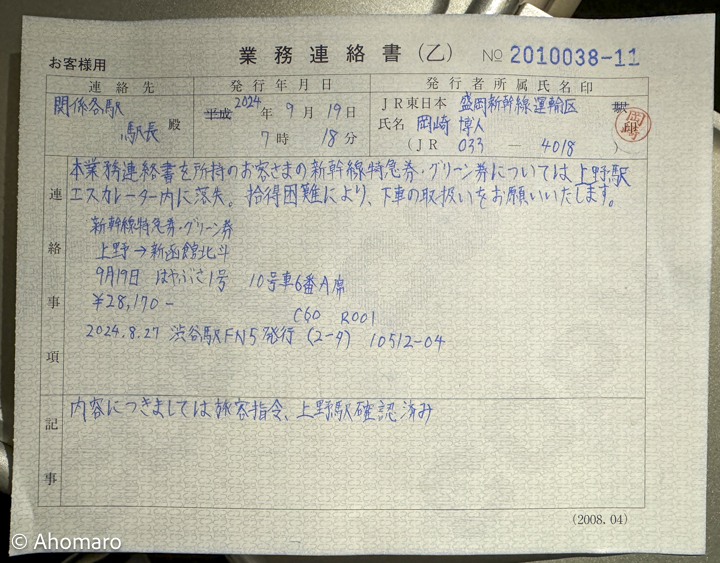 お客様用 業務連絡書(乙) № 2010038-11
連絡先 発行年月日 発行者所属氏名印
関係各駅 平成 2024年9月19日 JR東日本 盛岡新幹線運輸区
駅長 殿 7時18分 氏名 岡崎 博人 印
(JR 033 — 4018 )
連絡事項
本業務連絡書を所持のお客さまの新幹線特急券・グリーン券については上野駅
エスカレーター内に落失。拾得困難により、下車の取扱いをお願いいたします。
新幹線特急券・グリーン券
上野→新函館北斗
9月19日 はやぶさ1号 10号車6番A席
¥28,170-
C60 R001
2024.8.27 渋谷駅FN5発行 (2-タ) 10512-04
記事
内容につきましては旅客指令、上野駅確認済み
(2008.04)
© Ahomaro